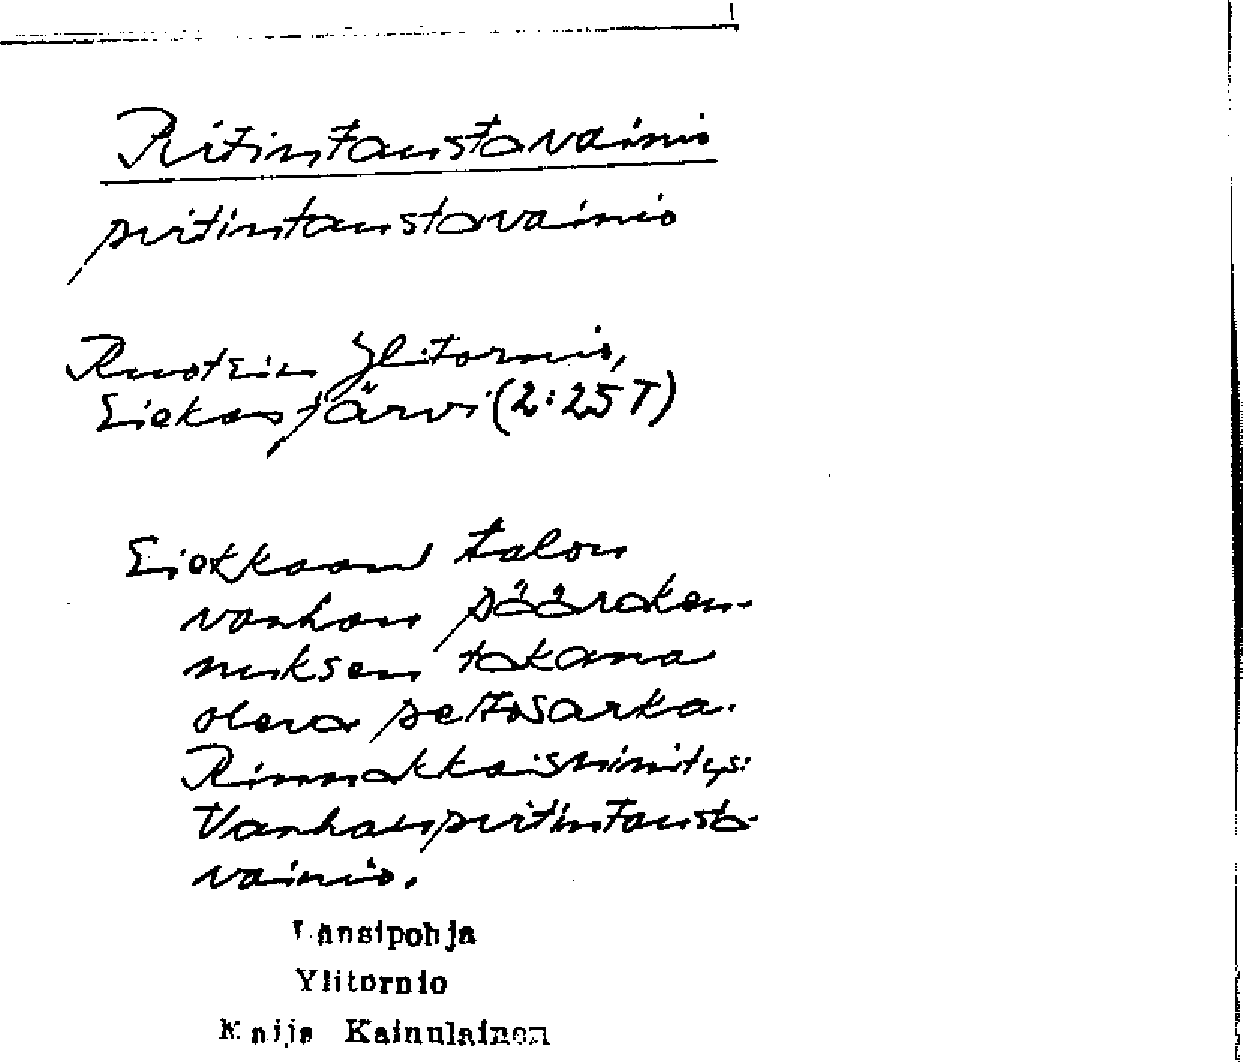 Pirtintaustavainio
pirtintaustavainio
Ruotsin Ylitornio,
Siekasjärvi (2:25T)
Siekkaan talon
vanhan pääraken-
nuksen takana
oleva peltosarka.
Rinnakkaisnimitys:
Vanhanpirtintausta-
vainio.
Länsipohja
Ylitornio
Maija Kainulainen